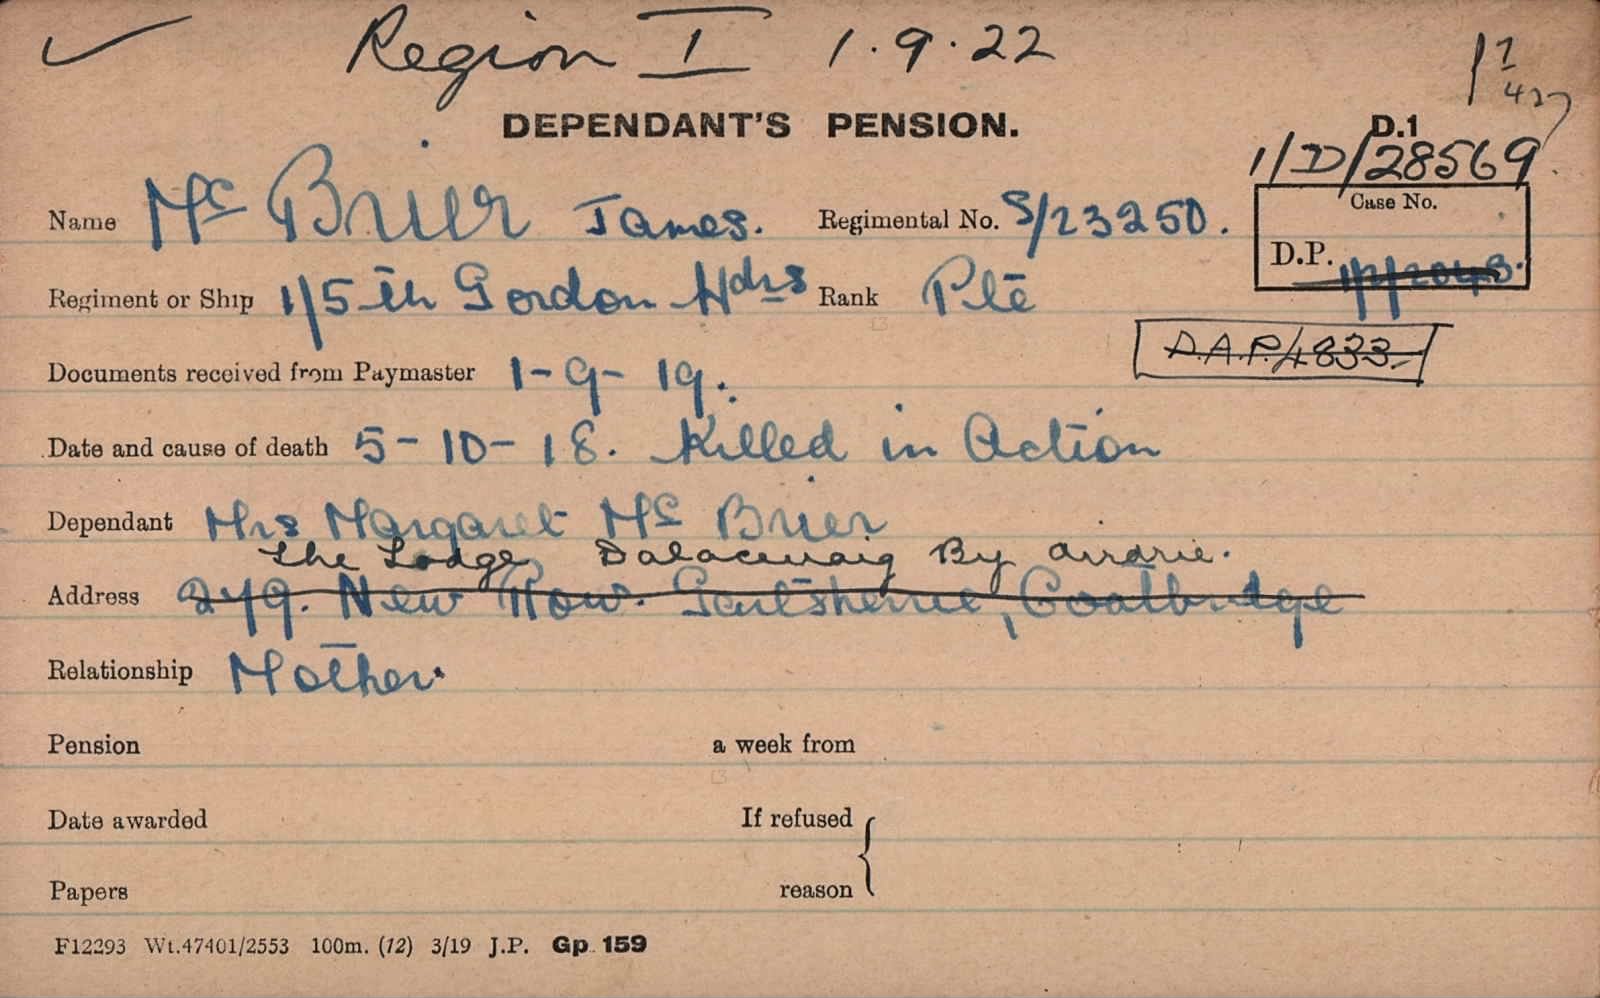 Region I 1.9.22
DEPENDANT'S PENSION.
D.1
1/D/28569
Name Mc Brier James. Regimental No. S/23250.
Case No.
D.P.
Regiment or Ship 1/5th Gordon Hdrs Rank Pte
D.A.P./4833.
Documents received from Paymaster 1-9-19.
Date and cause of death 5-10-18. Killed in Action
Dependant Mrs Margaret Mc Brier
The Lodge By Airdrie.
Address 279. New Row. Gartsherrie, Coatbridge
Relationship Mother.
Pension a week from
Date awarded If refused
Papers reason
F12293 Wt.47401/2553 100m. (12) 3/19 J.P. Gp. 159